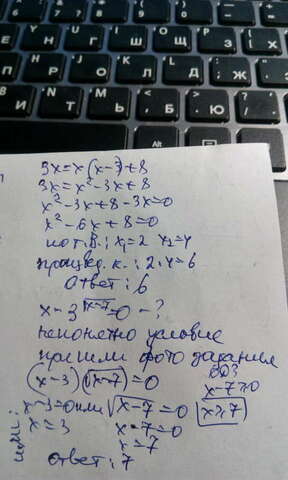 6 7 8 9 0
Г Ш Щ З
П Р О Л Д Ж
И Т Ь Б Ю
3x=x(x-3)+8
3x=x²-3x+8
x²-3x+8-3x=0
x²-6x+8=0
по т.В.: x₁=2 x₂=4
произвед. к.: 2·4=6
Ответ: 6
x-3√x-7=0 -?
непонятно условие
пришли фото задания
(x-3)√x-7=0 ОДЗ
x-7≥0
x-3=0 или √x-7=0 x≥7
x=3 x-7=0
x=7
или:
ответ: 7